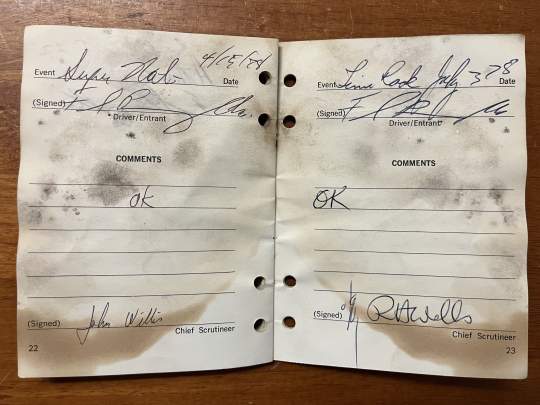 Event Super Nats 4/15/78 Date
(Signed)
Driver/Entrant
COMMENTS
OK
(Signed) John Willis
Chief Scrutineer
22
Event Lime Rock July 3 78 Date
(Signed)
Driver/Entrant
COMMENTS
OK
(Signed)
Chief Scrutineer
23